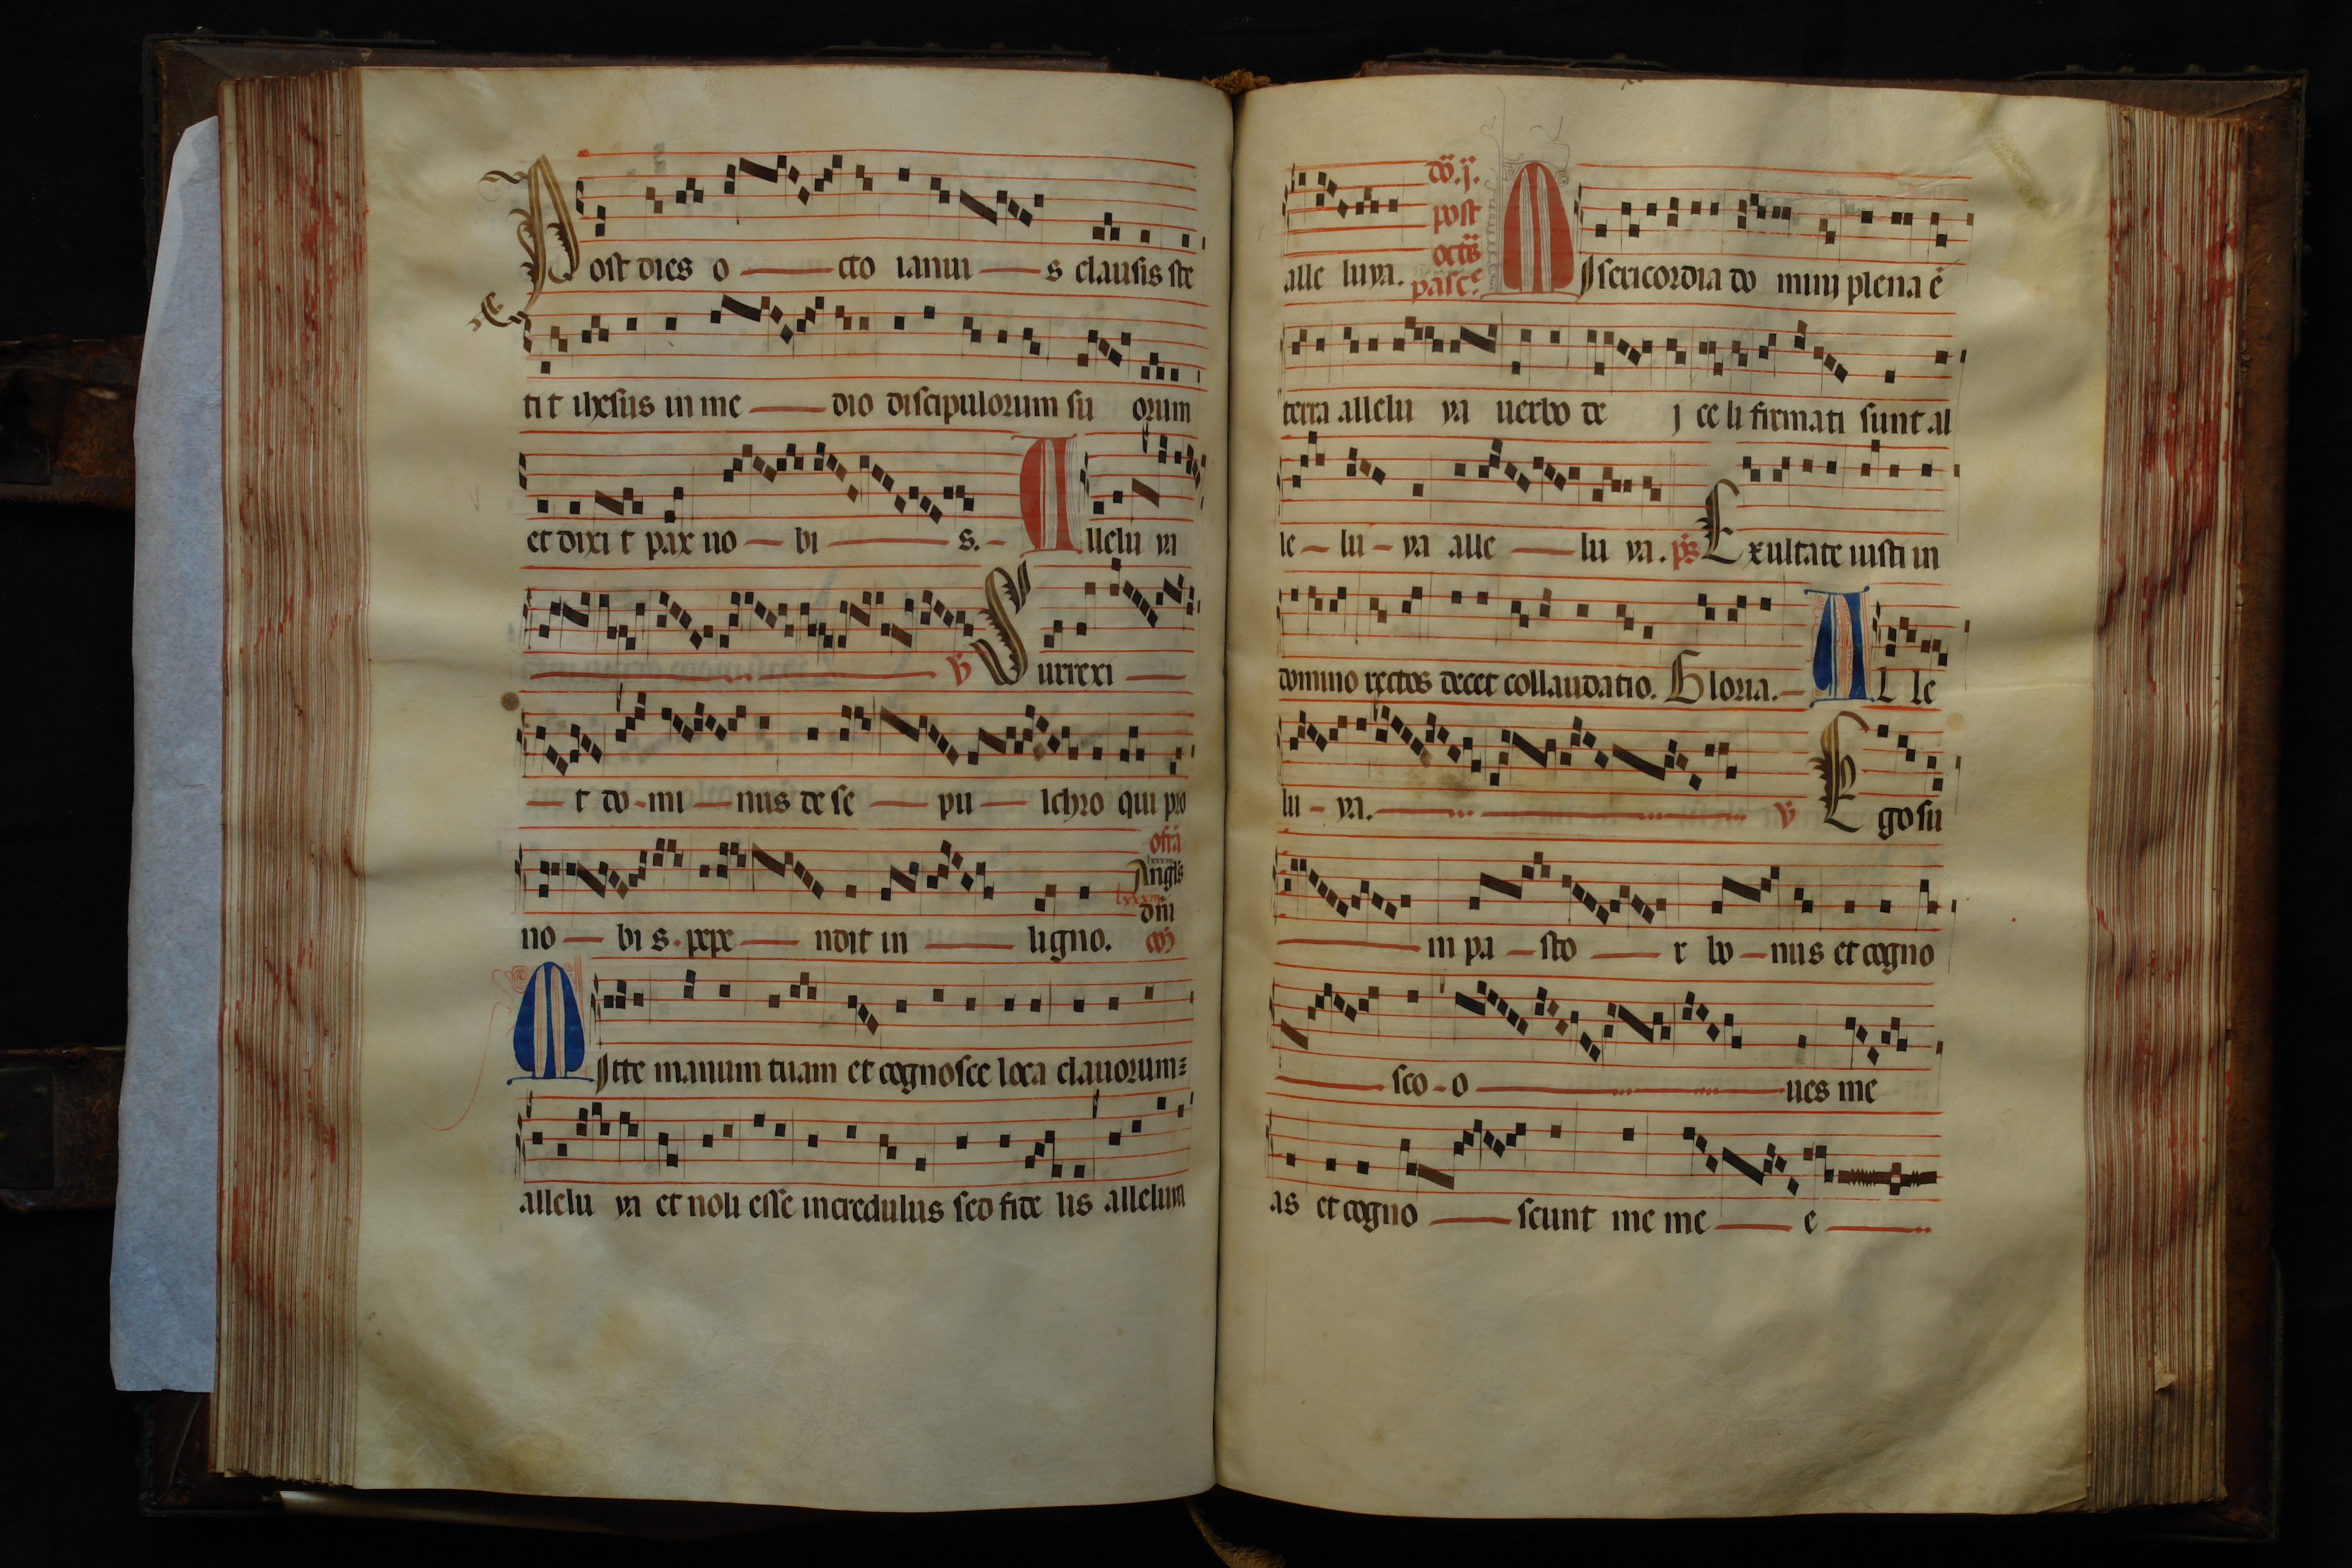 Post dies o cto ianui s clausis ste
tit ihesus in me dio discipulorum su orum
et dixi t pax no bi s. Allelu ya
V Surrexi
t do mi nus de se pu lchro qui pro
offa
no bi s. pepe ndit in ligno. Angls dni
co
Mitte manum tuam et cognosce loca clauorum
allelu ya et noli esse incredulus sed fide lis alleluya
alle luya. do. j. post octas pasce Misericordia do minj plena e
terra allelu ya uerbo de j ce li firmati sunt al
le lu ya alle lu ya. ps Exultate iusti in
domino rectos decet collaudatio. Gloria. Al le
lu ya. V Ego su
m pa sto r bo nus et cogno
sco o ues me
as et cogno scunt me me e